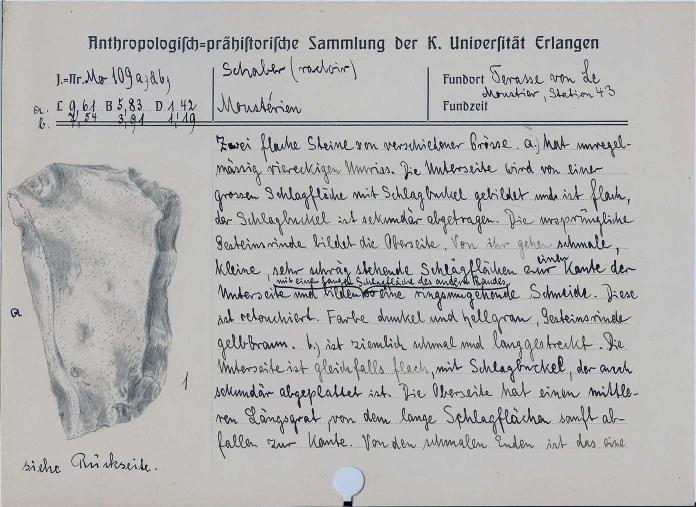 Anthropologisch=prähistorische Sammlung der K. Universität Erlangen
J.=Nr. Mo 109 a, & b,
Schaber (racloir)
Fundort Terasse von Le
Moustier, Station 43
a. L 9,61 B 5,83 D 1,42
b. 7,54 3,91 1,19
Moustérien
Fundzeit
Zwei flache Steine von verschiedener Grösse. a.) hat unregel-
mässig viereckigen Umriss. Die Unterseite wird von einer
grossen Schlagfläche mit Schlagbuckel gebildet und ist flach,
der Schlagbuckel ist sekundär abgetragen. Die ursprüngliche
Gesteinsrinde bildet die Oberseite. Von ihr gehen schmale,
kleine, sehr schräg stehende Schlagflächen zur einen Kante der
mit einer des andern Randes
Unterseite und bilden so eine ringsumgehende Schneide. Diese
ist retouchiert. Farbe dunkel und hellgrau, Gesteinsrinde
gelbbraun. b.) ist ziemlich schmal und langgestreckt. Die
Unterseite ist gleichfalls flach, mit Schlagbuckel, der auch
sekundär abgeplattet ist. Die Oberseite hat einen mittle-
ren Längsgrat, von dem lange Schlagflächen sanft ab-
fallen zur Kante. Von den schmalen Enden ist das eine
a
1
siehe Rückseite.